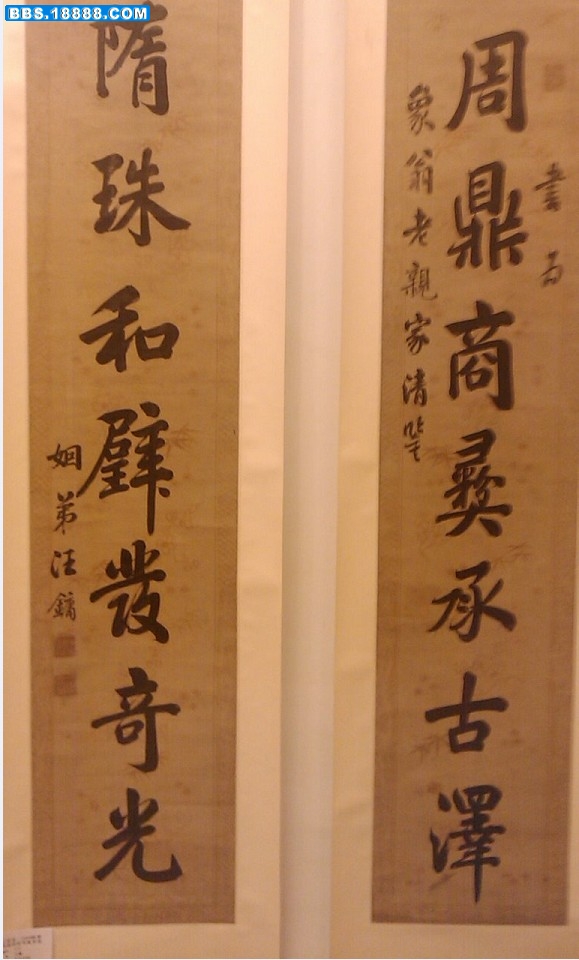 BBS.18888.COM
書為
周鼎商彝承古澤
象翁老親家清鑒
隋珠和璧發奇光
姻弟汪鏞